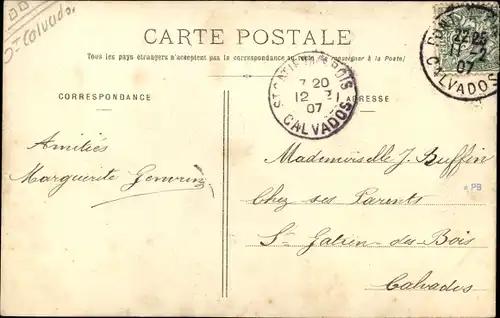 St Calvados
CARTE POSTALE
Tous les pays étrangers n'acceptent pas la correspondance au recto (se renseigner à la Poste)
CORRESPONDANCE
ADRESSE
ST GATIEN BOIS
7 20
12 -1
07
CALVADOS
22 25
11 -2
07
CALVADOS
Amitiés
Marguerite
Mademoiselle J. Buffin
Chez ses Parents
St Gatien-des-Bois
Calvados
PB